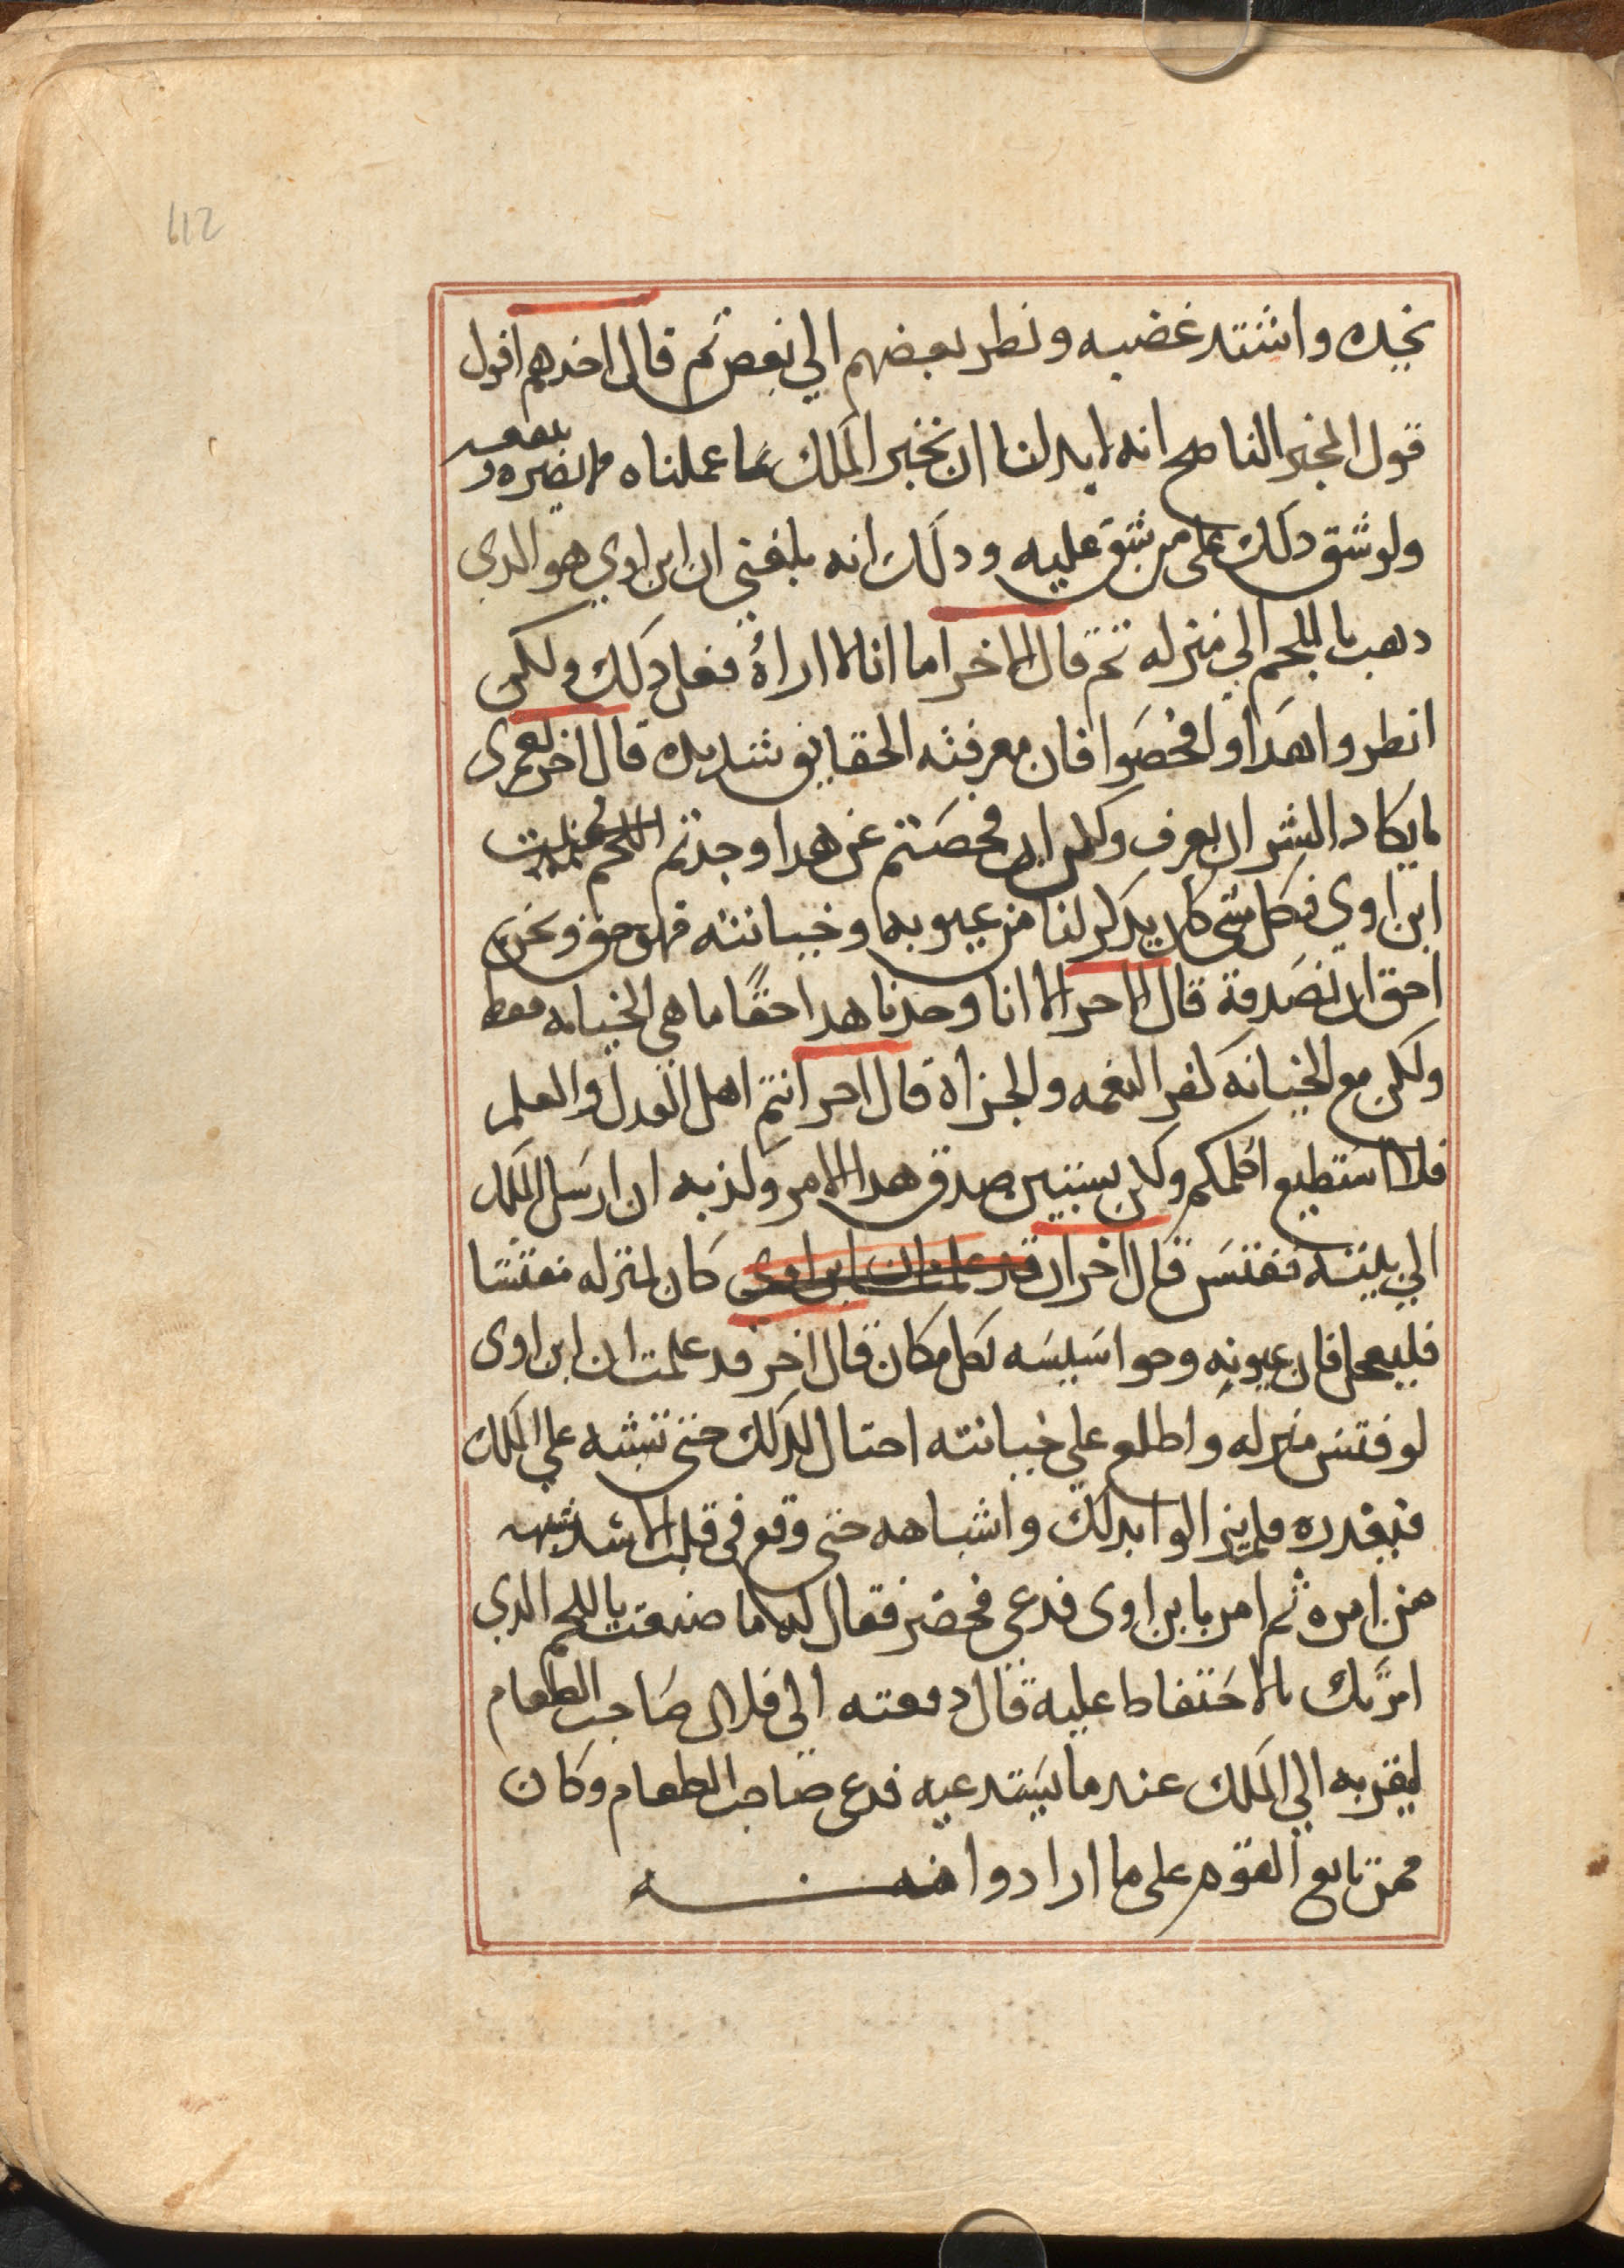 112
نجده واشتد غضبه ونطر بعضهم الي بعض ثم قال احدهم اقول
قول المخبر الناصح انه لا بد لنا ان نخبر الملك بما عملناه مما يضره و ينفعه
ولو شق دلك على من شق عليه ودلك انه بلغني ان ابن اوي هو الدي
دهب باللحم الي منزله ثم قال الاخر اما انا لا اراه فعل دلك ولكن
انطروا هدا وافحصوا فان معرفته الحقايق شديده قال اخر لعمري
ما يكاد البشر ان يعرف ولكن ان فحصتم عن هدا وجدتم اللحم ببيت
ابن اوي فكل شي كان يدكر لنا من عيوبه وخيانته فهو حق ونحن
احق ان نصدقة قال الاخر لان انا وجدنا هدا حقًا ما هي الخيانه فقط
ولكن مع الخيانه كفر النعمه والجزاه قال اخر انتم اهل العدل والعلم
فلا استطيع اكلمكم ولكن يستبين صدق هدا الامر وكذبه ان ارسل الملك
الي بيته ففتش قال اخر ان قد علمت ان ابن اوى كان لمنزله مفتشا
فليعجل فان عيونه وجواسيسه لكل مكان قال اخر قد علمت ان ابن اوى
لو فتش منزله واطلع علي خيانته احتال لدلك حتى تشبه علي الملك
فيعدره فلم يزالوا بدلك واشباهه حتى وقع في قلب الاسد شبهه
من امره ثم امر بابن اوى فدعي فحضر فقال له ما صنعت باللحم الدي
امرتك بالاحتفاط عليه قال دفعته الى فلان صاحب الطعام
ليقربه الي الملك عند ما يستدعيه فدعى صاحب الطعام وكان
ممن تابع القوم على ما ارادوا منه